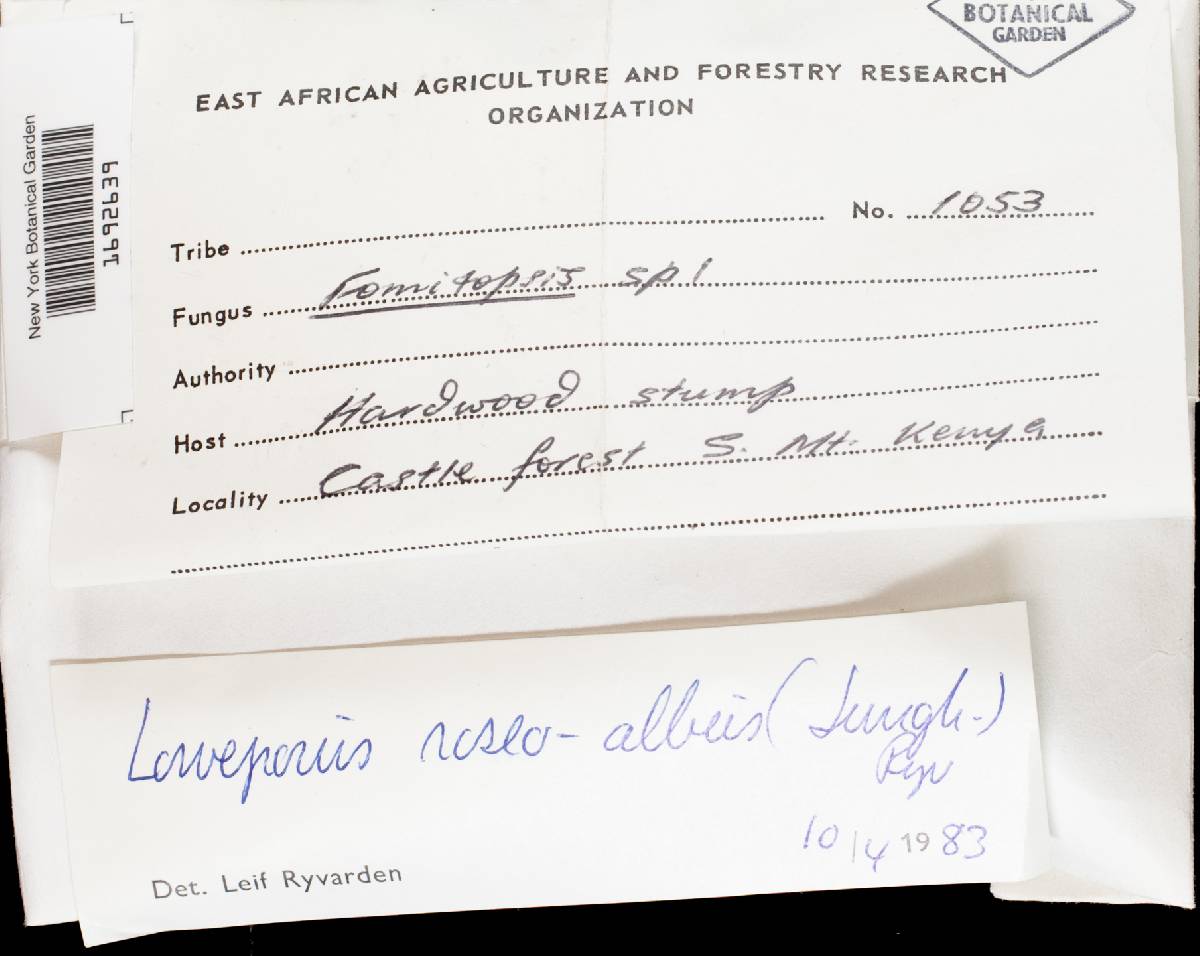 BOTANICAL
GARDEN
EAST AFRICAN AGRICULTURE AND FORESTRY RESEARCH
ORGANIZATION
New York Botanical Garden
1992639
No. 1053
Tribe
Fungus Fomitopsis sp 1
Authority
Host Hardwood stump
Locality Castle forest S. Mt. Kenya
Loweporus roseo-albus (Jungh.)
Ryv
10/4 1983
Det. Leif Ryvarden